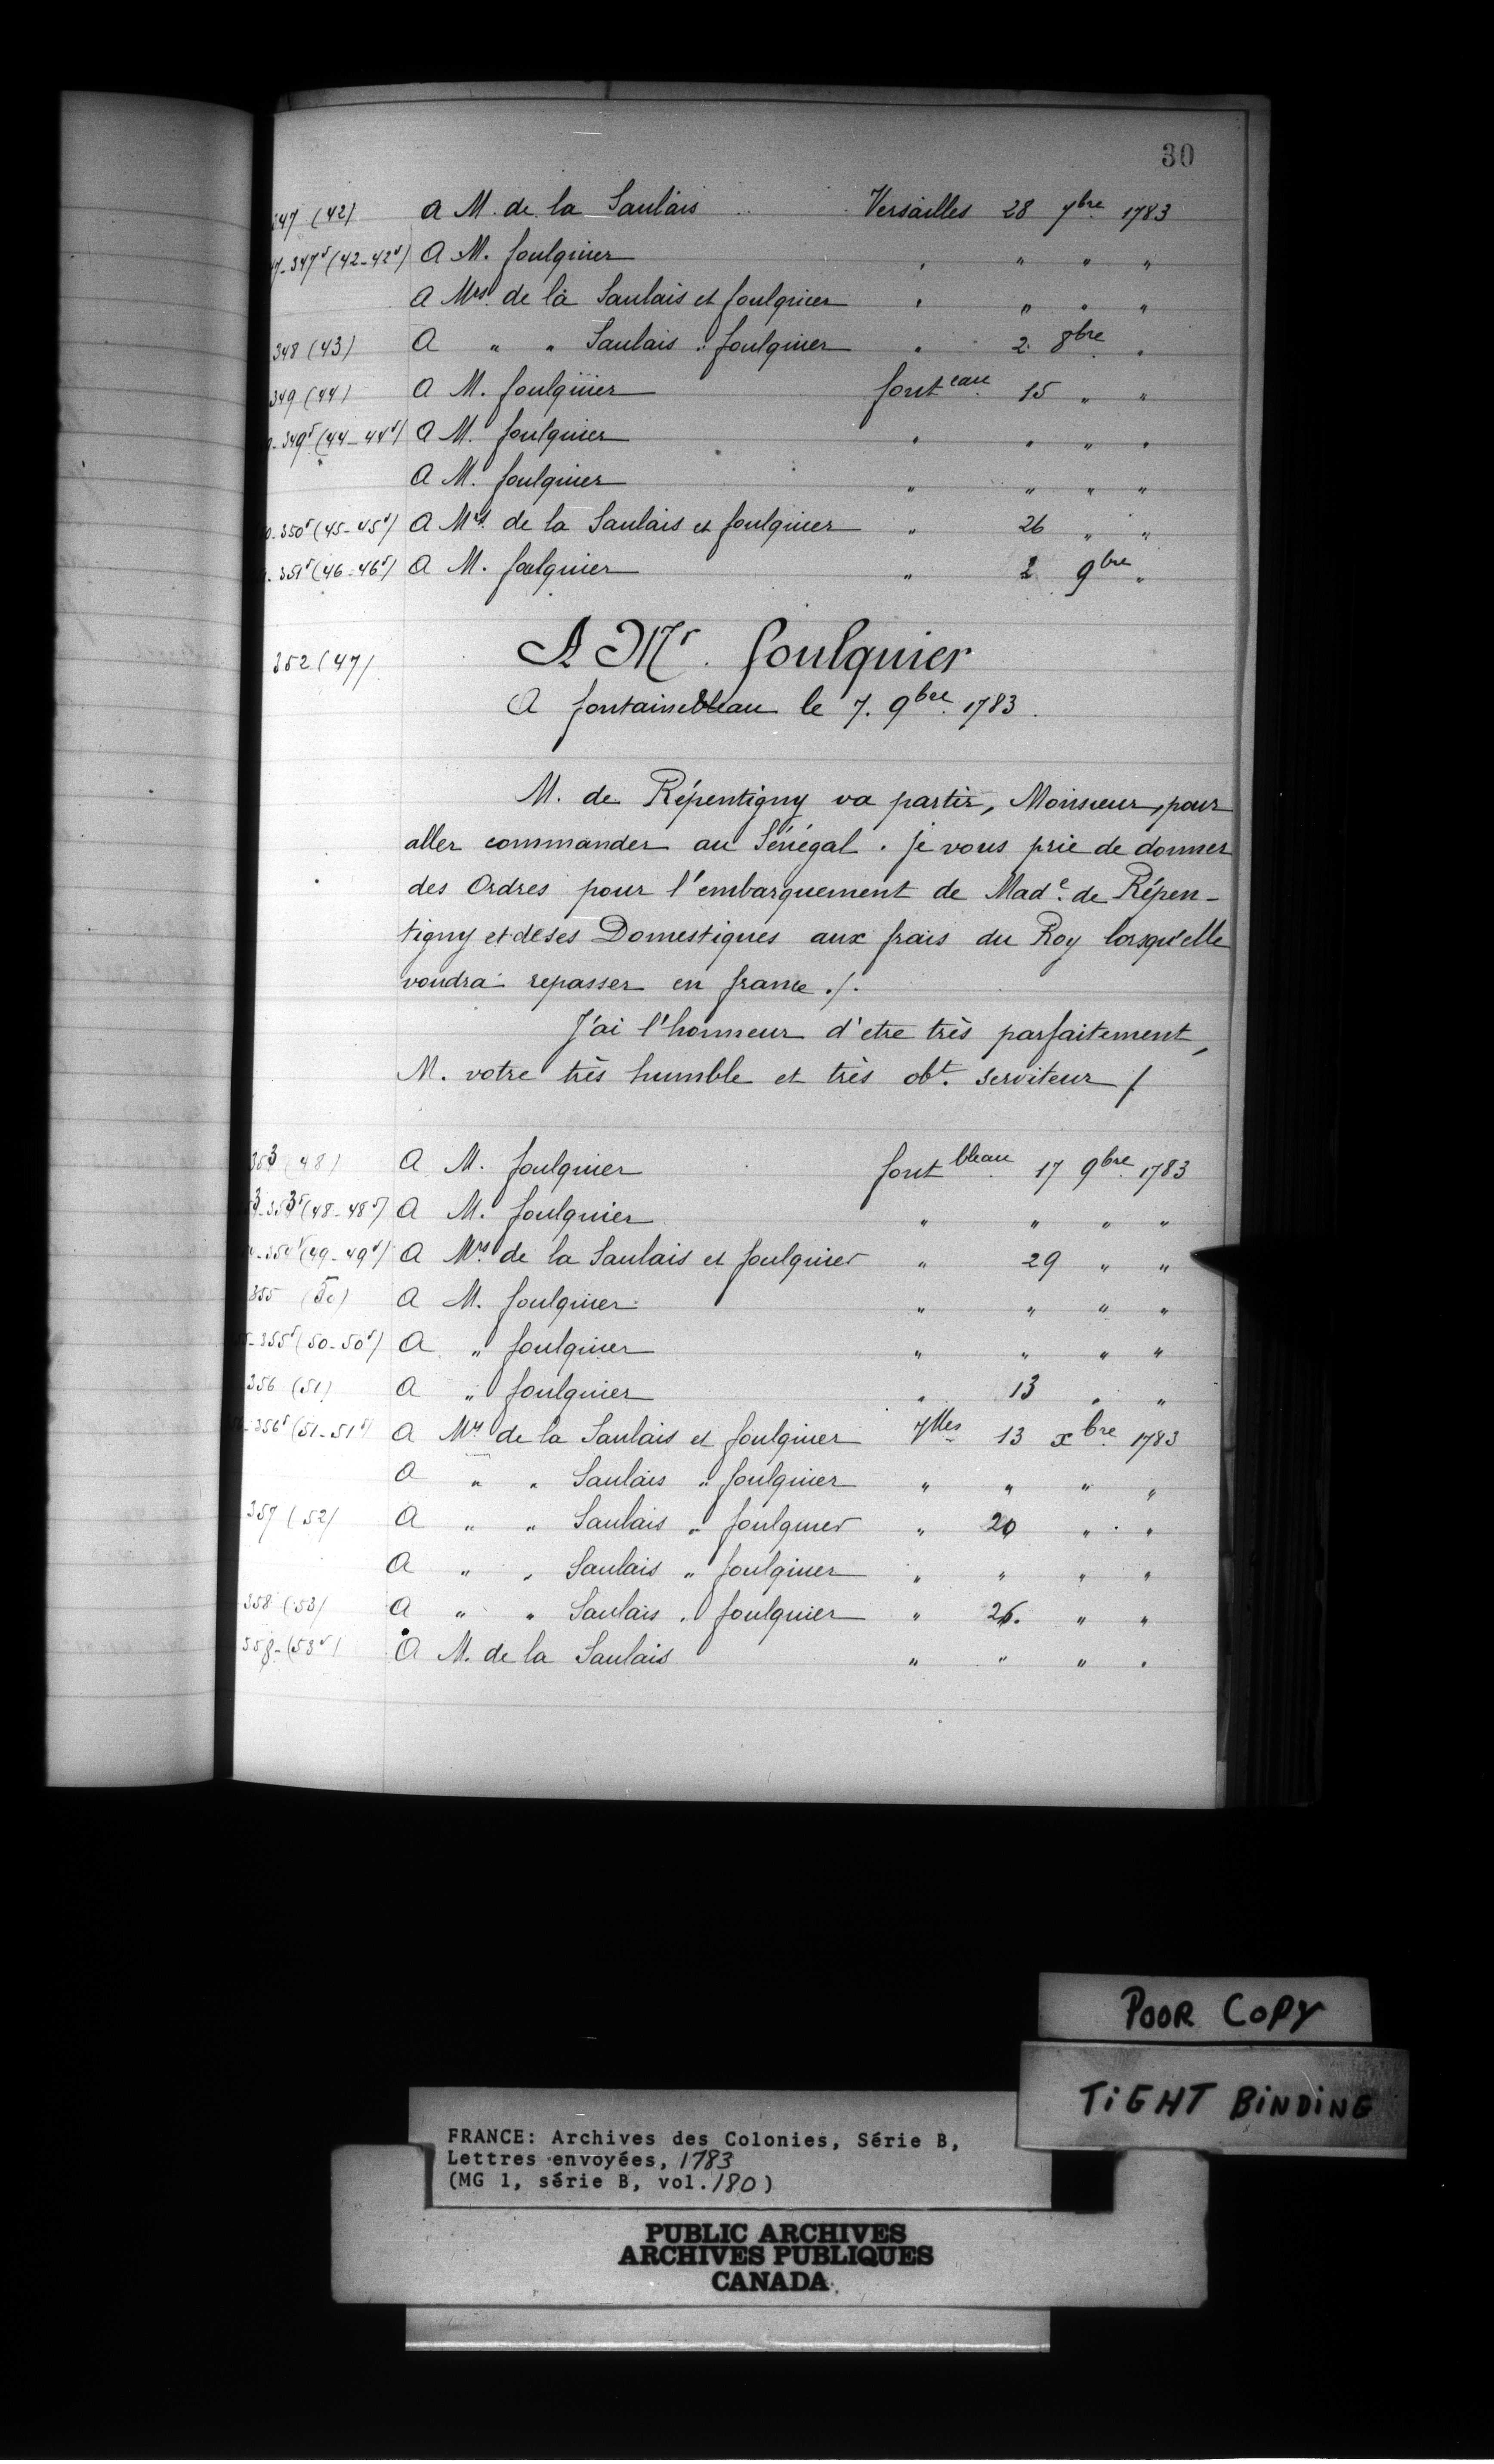 30
347 (42) A M. de la Saulais Versailles 28 7bre 1783
7-347v (42-42v) A M. foulquier " " " "
A Mrs de la Saulais et foulquier " " " "
348 (43) A " " Saulais " foulquier " 2 8bre "
349 (44) A M. foulquier fonteau 15 " "
9-349v (44-44v) A M. foulquier " " " "
A M. foulquier " " " "
0-350v (45-45v) A Mrs de la Saulais et foulquier " 26 " "
1-351v (46-46v) A M. foulquier " 2 9bre "
352 (47) A Mr. foulquier
A fontainebleau le 7. 9bre 1783.
M. de Répentigny va partir, Monsieur, pour
aller commander au Sénégal. je vous prie de donner
des Ordres pour l'embarquement de Made. de Répen-
tigny et de ses Domestiques aux frais du Roy lorsqu'elle
voudra repasser en france ./.
J'ai l'honneur d'etre très parfaitement,
M. votre très humble et très obt. serviteur /
353 (48) A M. foulquier fontbleau 17 9bre 1783
3-353v (48-48v) A M. foulquier " " " "
4-354v (49-49v) A Mrs de la Saulais et foulquier " 29 " "
355 (50) A M. foulquier " " " "
5-355v (50-50v) A " foulquier " " " "
356 (51) A " foulquier " 13 " "
6-356v (51-51v) A Mrs de la Saulais et foulquier Vlles 13 xbre 1783
A " " Saulais " foulquier " " " "
357 (52) A " " Saulais " foulquier " 20 " "
A " " Saulais " foulquier " " " "
358 (53) A " " Saulais " foulquier " 26. " "
358-(53v) A M. de la Saulais " " " "
POOR COPY
TiGHT BiNDiNG
FRANCE: Archives des Colonies, Série B,
Lettres envoyées, 1783
(MG 1, série B, vol. 180)
PUBLIC ARCHIVES
ARCHIVES PUBLIQUES
CANADA